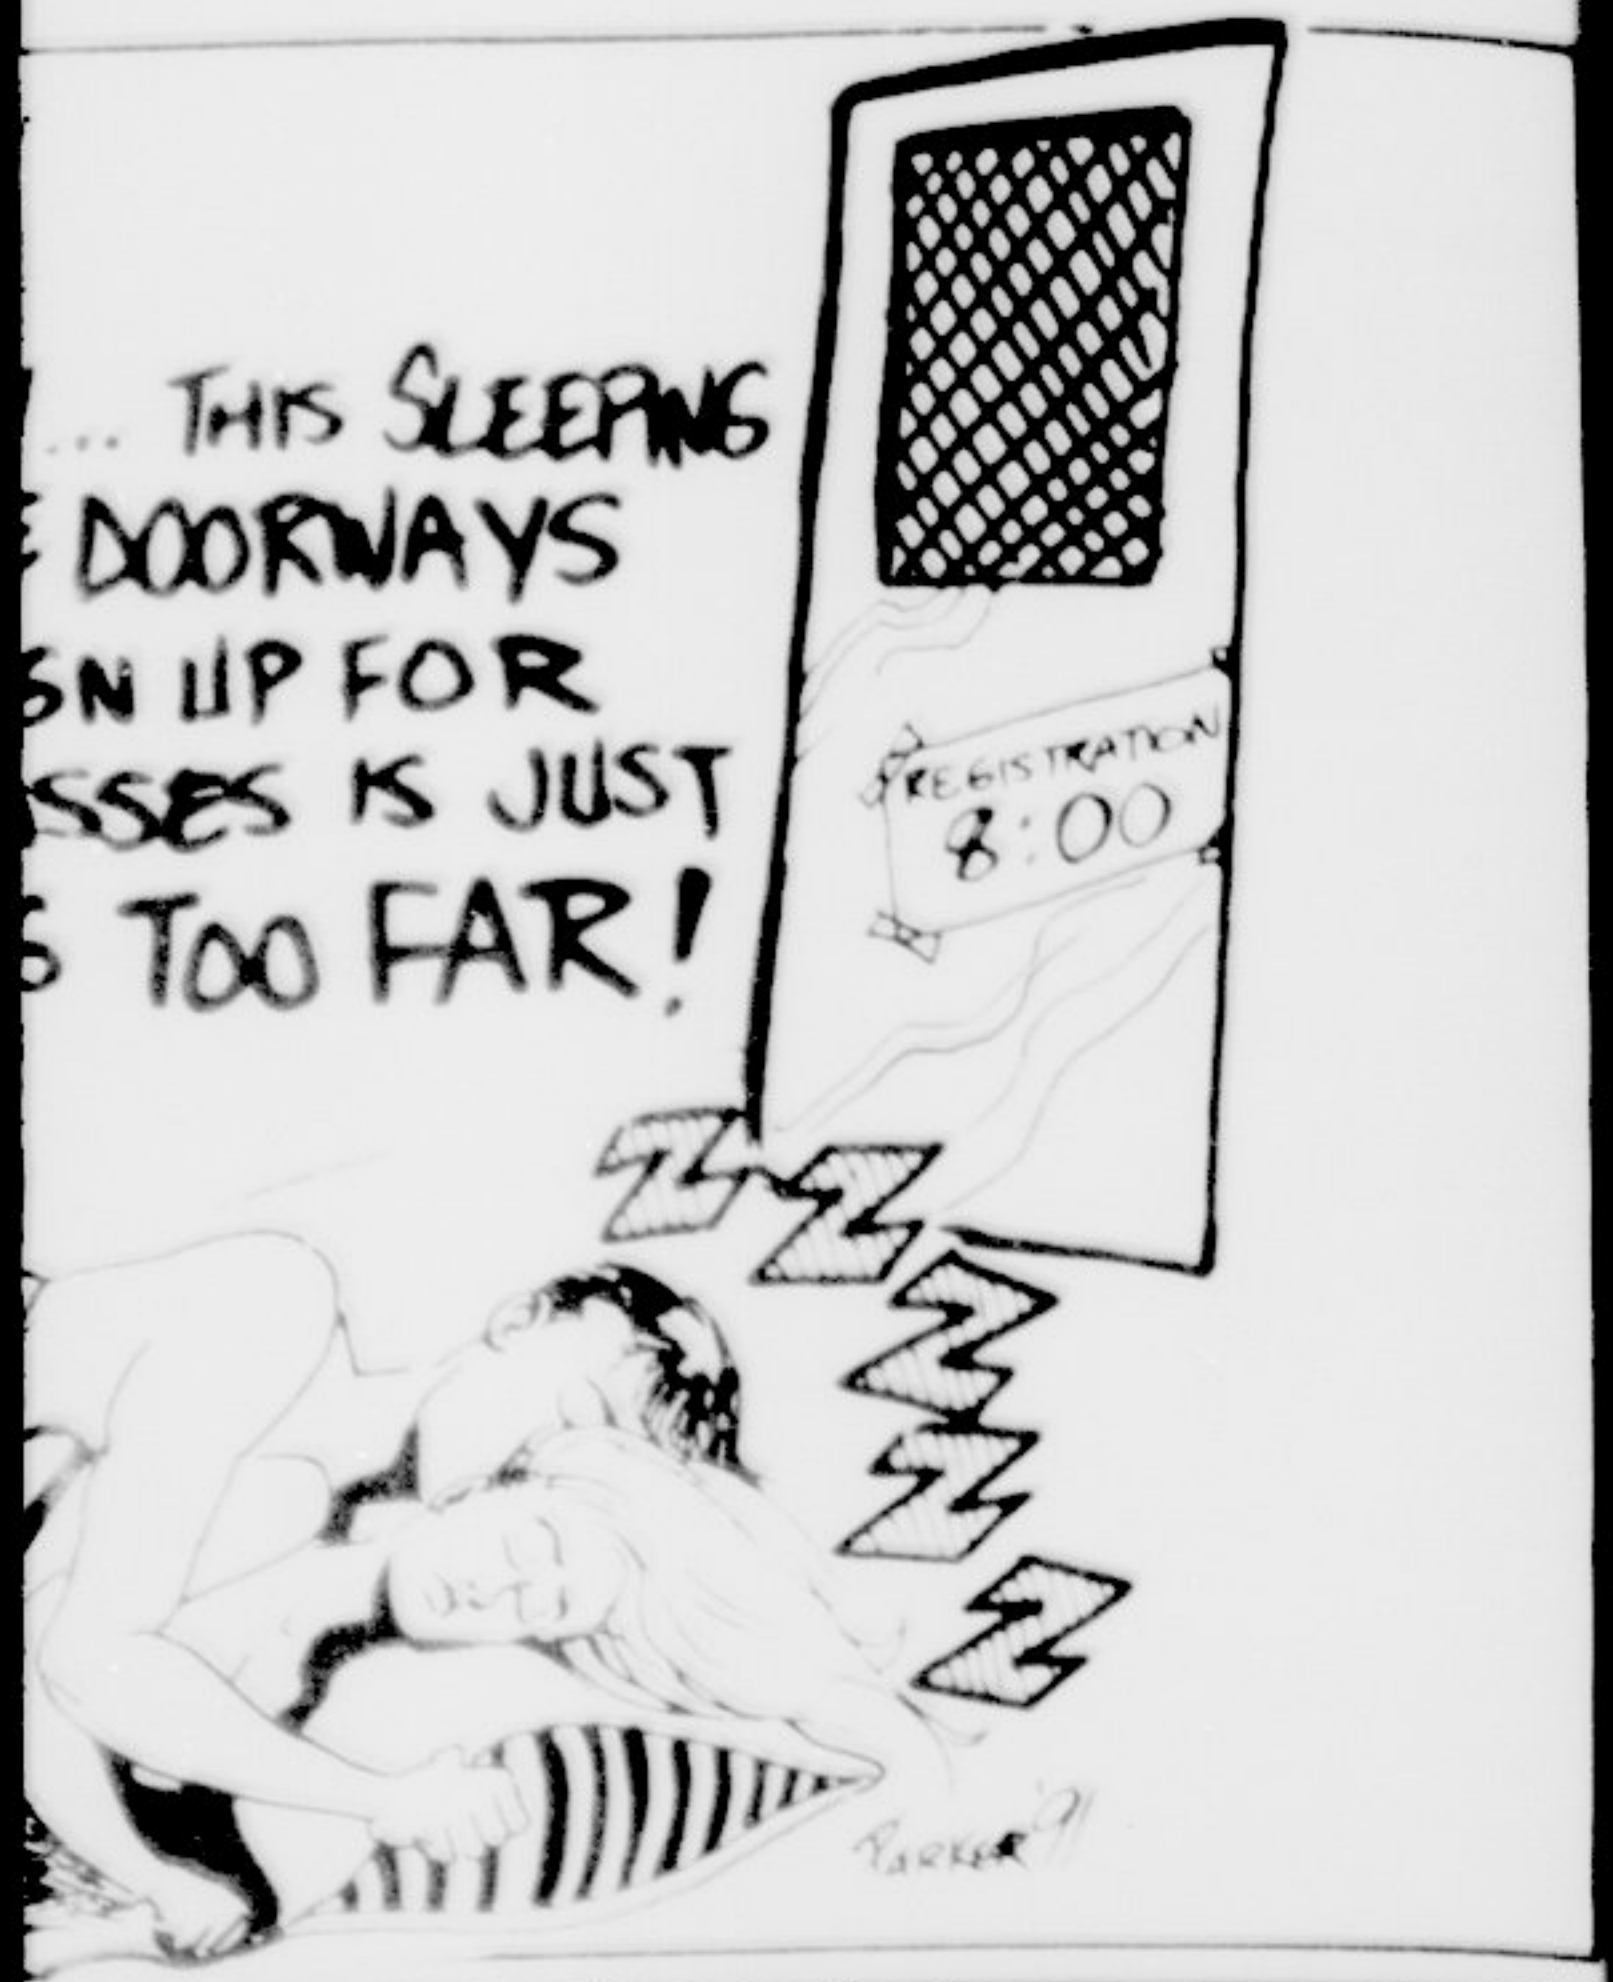 ... THIS SLEEPING
E DOORWAYS
GN UP FOR
SSES IS JUST
G TOO FAR!
REGISTRATION
8:00
Z Z Z Z Z
PARKER '91